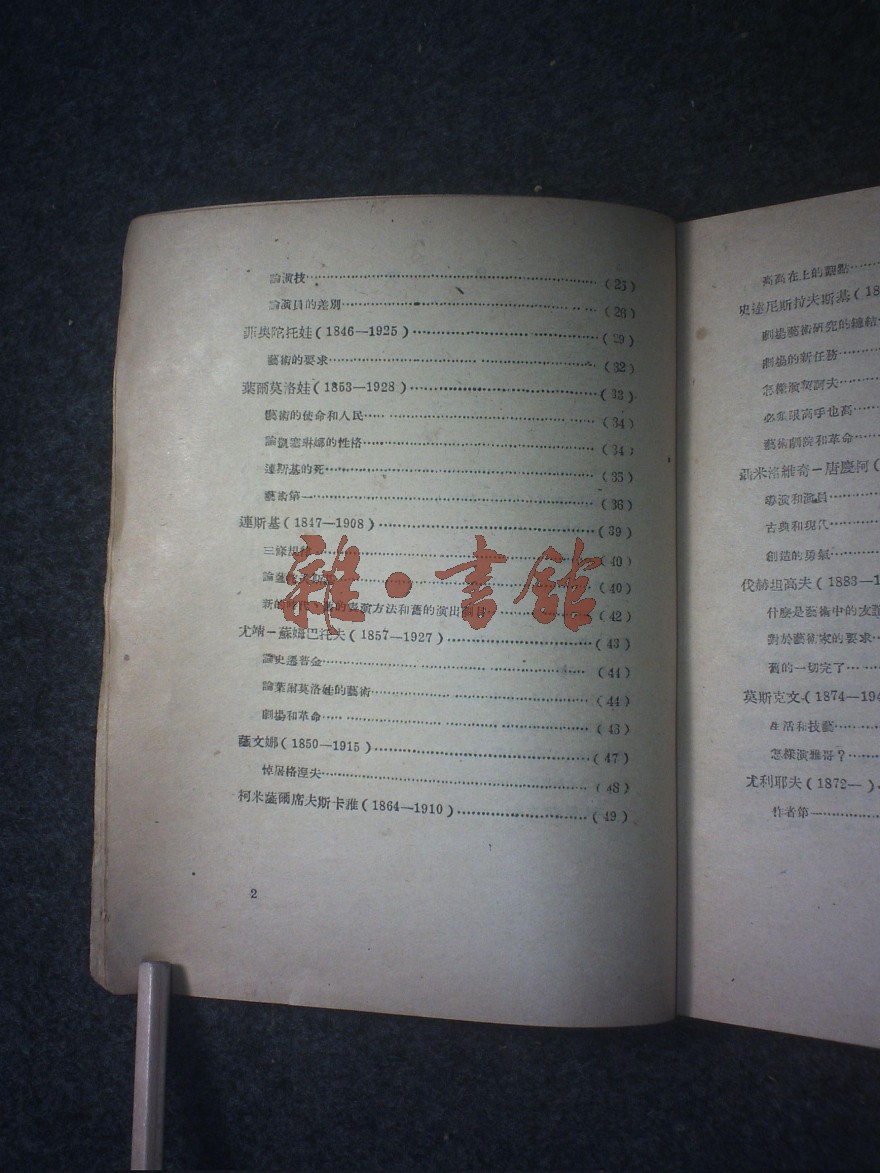 論演技 (25)
論演員的差別 (26)
菲奧陀托娃(1846—1925) (29)
藝術的要求 (32)
葉爾莫洛娃(1853—1928) (33)
藝術的使命和人民 (34)
論凱塞琳娜的性格 (34)
連斯基的死 (35)
藝術第一 (36)
連斯基(1847—1908) (39)
三條規 (40)
論 (40)
新的時代,舊的表演方法和舊的演出劇目 (42)
尤靖－蘇姆巴托夫(1857—1927) (43)
論史遷普金 (44)
論葉爾莫洛娃的藝術 (44)
劇場和革命 (43)
薩文娜(1850—1915) (47)
悼屠格涅夫 (48)
柯米薩爾席夫斯卡雅(1864—1910) (49)
2
雜·書館
高高在上的觀點
史達尼斯拉夫斯基(18
劇場藝術研究的總結
劇場的新任務
怎樣演契訶夫
必須眼高手也高
藝術劇院和革命
聶米洛維奇－唐慶柯(
導演和演員
古典和現代
創造的勇氣
伐赫坦高夫(1883—1
什麼是藝術中的
對於藝術家的要求
舊的一切完了
莫斯克文(1874—194
生活和技藝
怎樣演雅哥?
尤利耶夫(1872—)
作者第一